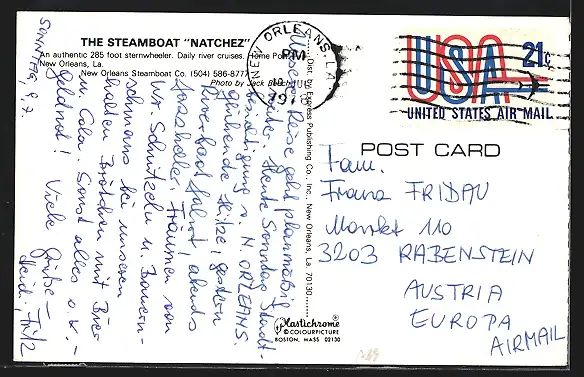 THE STEAMBOAT "NATCHEZ"
An authentic 285 foot sternwheeler. Daily river cruises. Home Port
New Orleans, La.
New Orleans Steamboat Co. (504) 586-8777
Photo by Jack Beech
Dist. by Express Publishing Co., Inc., New Orleans, La. 70130
Plastichrome®
© COLOURPICTURE
BOSTON, MASS 02130
NEW ORLEANS, LA
PM
USA 21c
UNITED STATES AIR MAIL
POST CARD
Fam.
Franz FRIDAU
Markt 110
3203 RABENSTEIN
AUSTRIA
EUROPA
AIRMAIL
SONNTAG, 9.7.
Unsere Reise geht planmäßig
weiter. Heute Sonntag Stadt-
besichtigung v. N. ORLEANS.
Glühende Hitze, gestern
Riverboatfahrt, abends
Jazzkeller. Träumen von
Wr. Schnitzeln u. Bauern-
schmaus bei unseren
Brötchen mit Bier
u. Cola. Sonst alles o.k. –
Geldnot! Viele Grüße –
Heidi,